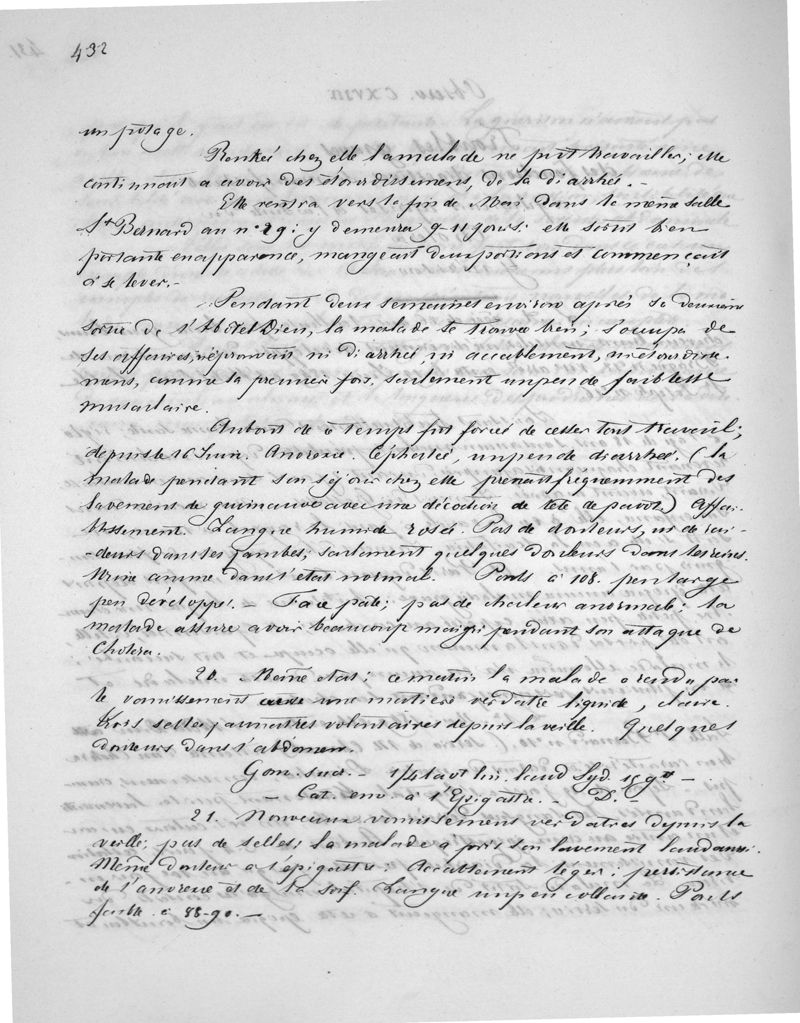 432
un potage.
Rentrée chez elle la malade ne put travailler; elle
continuait a avoir des étourdissemens, de la diarrhée. -
Elle rentra vers la fin de Mai dans la même salle
St Bernard au n° 29; y demeura 9-11 jours; elle sortit bien
portante en apparence, mangeant deux portions et commençait
à se lever. -
Pendant deux semaines environ après sa deuxieme
sortie de l'Hotel Dieu, la malade se trouva bien; s'occupa de
ses affaires, n'éprouvait ni diarrhée, ni accablement, ni étourdisse-
mens, comme la premiere fois, seulement un peu de faiblesse
musculaire.
Au bout de ce temps fut forcée de cesser tout travail;
depuis le 16 Juin. Anorexie. Céphalée, un peu de diarrhée. (la
malade pendant son séjour chez elle prenait fréquemment des
lavemens de guimauve avec une décoction de tete de pavot.) Affai-
blissement. Langue humide rosée. Pas de douleurs, ni de rai-
-deurs dans les jambes; seulement quelques douleurs dans les reins.
Urine comme dans l'etat normal. Pouls à 108. peu large
peu développé. - Face pâle; pas de chaleur anormale; la
malade assure avoir beaucoup maigri pendant son attaque de
Cholera.
20. Même etat; ce matin la malade a rendu par
le vomissement une matiere verdatre liquide, claire.
Trois selles jaunatres volontaires depuis la veille. Quelques
douleurs dans l'abdomen.
Gom. sucr. - 1/4 lavt lin. laud Syd. 15 gtt -
- Cat. env. à l'Epigastre. - D. -
21. Nouveaux vomissement verdatres depuis la
veille; pas de selles; la malade a pris son lavement laudanisé.
Même douleur a l'épigastre; Accablement léger; persistance
de l'anorexie et de la soif. Langue un peu collante. Pouls
faible à 88-90. -